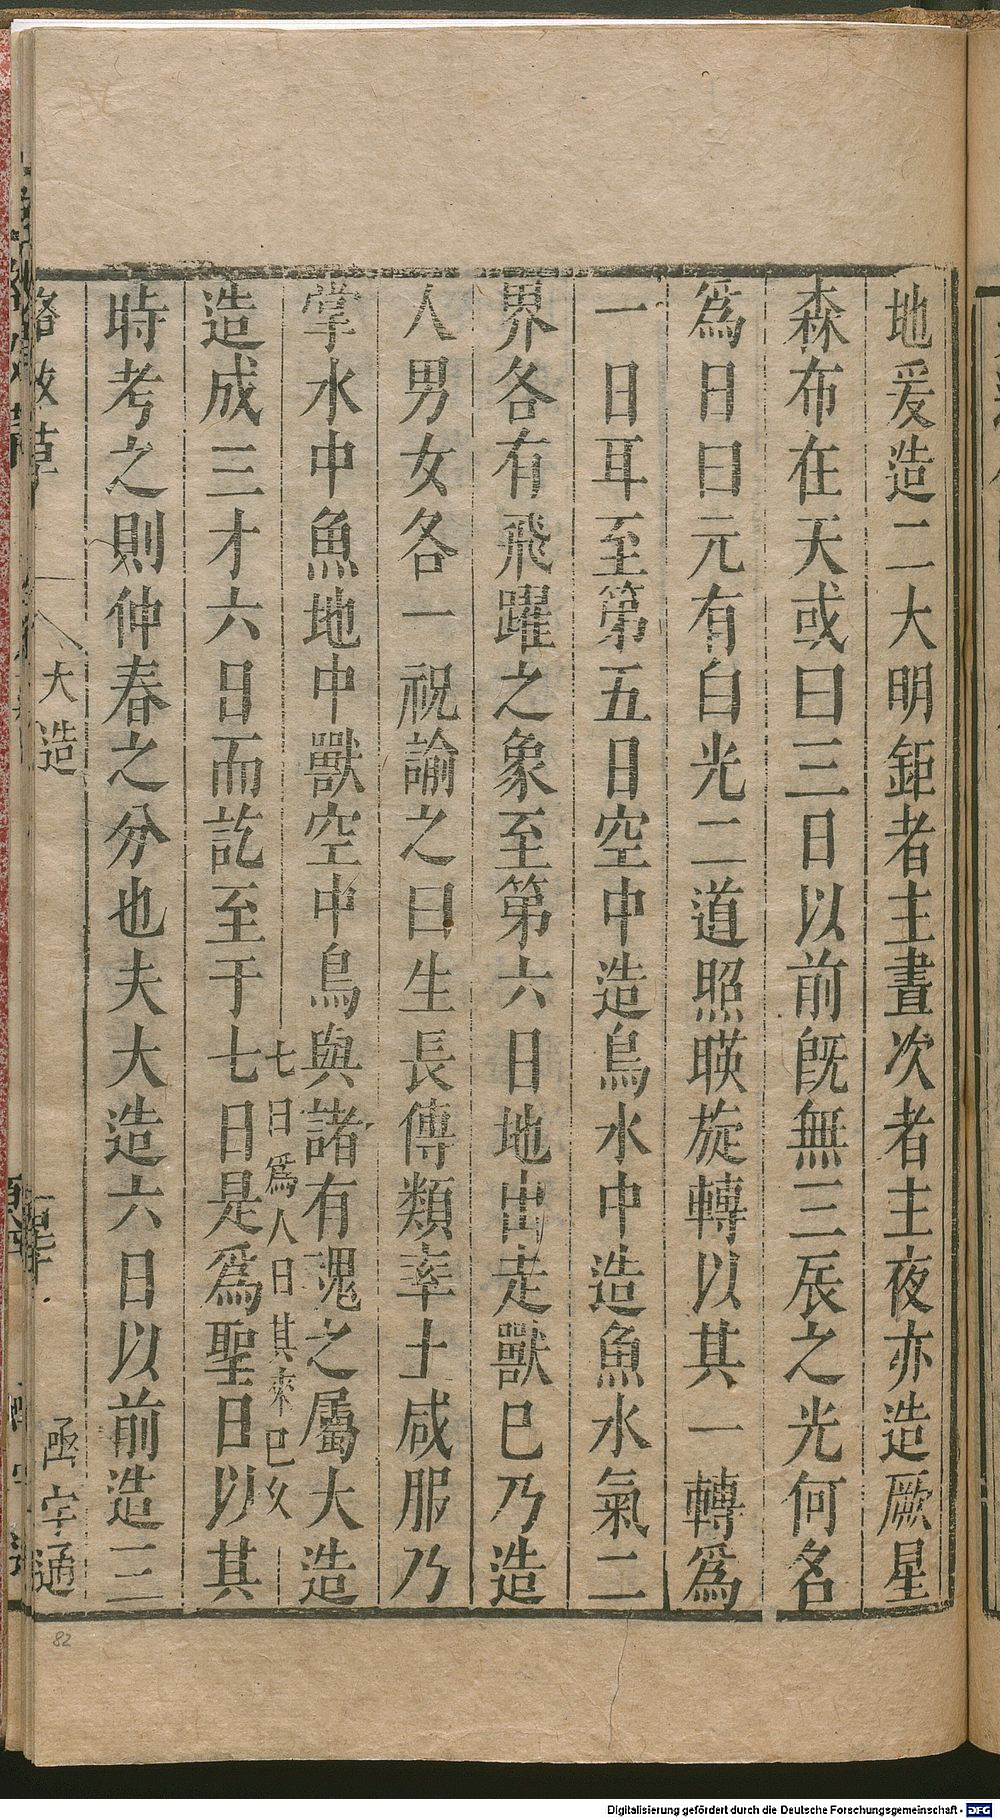 地爰造二大明鉅者主晝次者主夜亦造厥星
森布在天或曰三日以前旣無三辰之光何名
爲日曰元有白光二道照暎旋轉以其一轉爲
一日耳至第五日空中造鳥水中造魚水氣二
界各有飛躍之象至第六日地出走獸巳乃造
人男女各一祝諭之曰生長傳類率土咸服乃
掌水中魚地中獸空中鳥與諸有魂之屬大造
七日爲人日其來巳久
造成三才六日而訖至于七日是爲聖日以其
時考之則仲春之分也夫大造六日以前造三
大造
函宇通
82
Digitalisierung gefördert durch die Deutsche Forschungsgemeinschaft - DFG